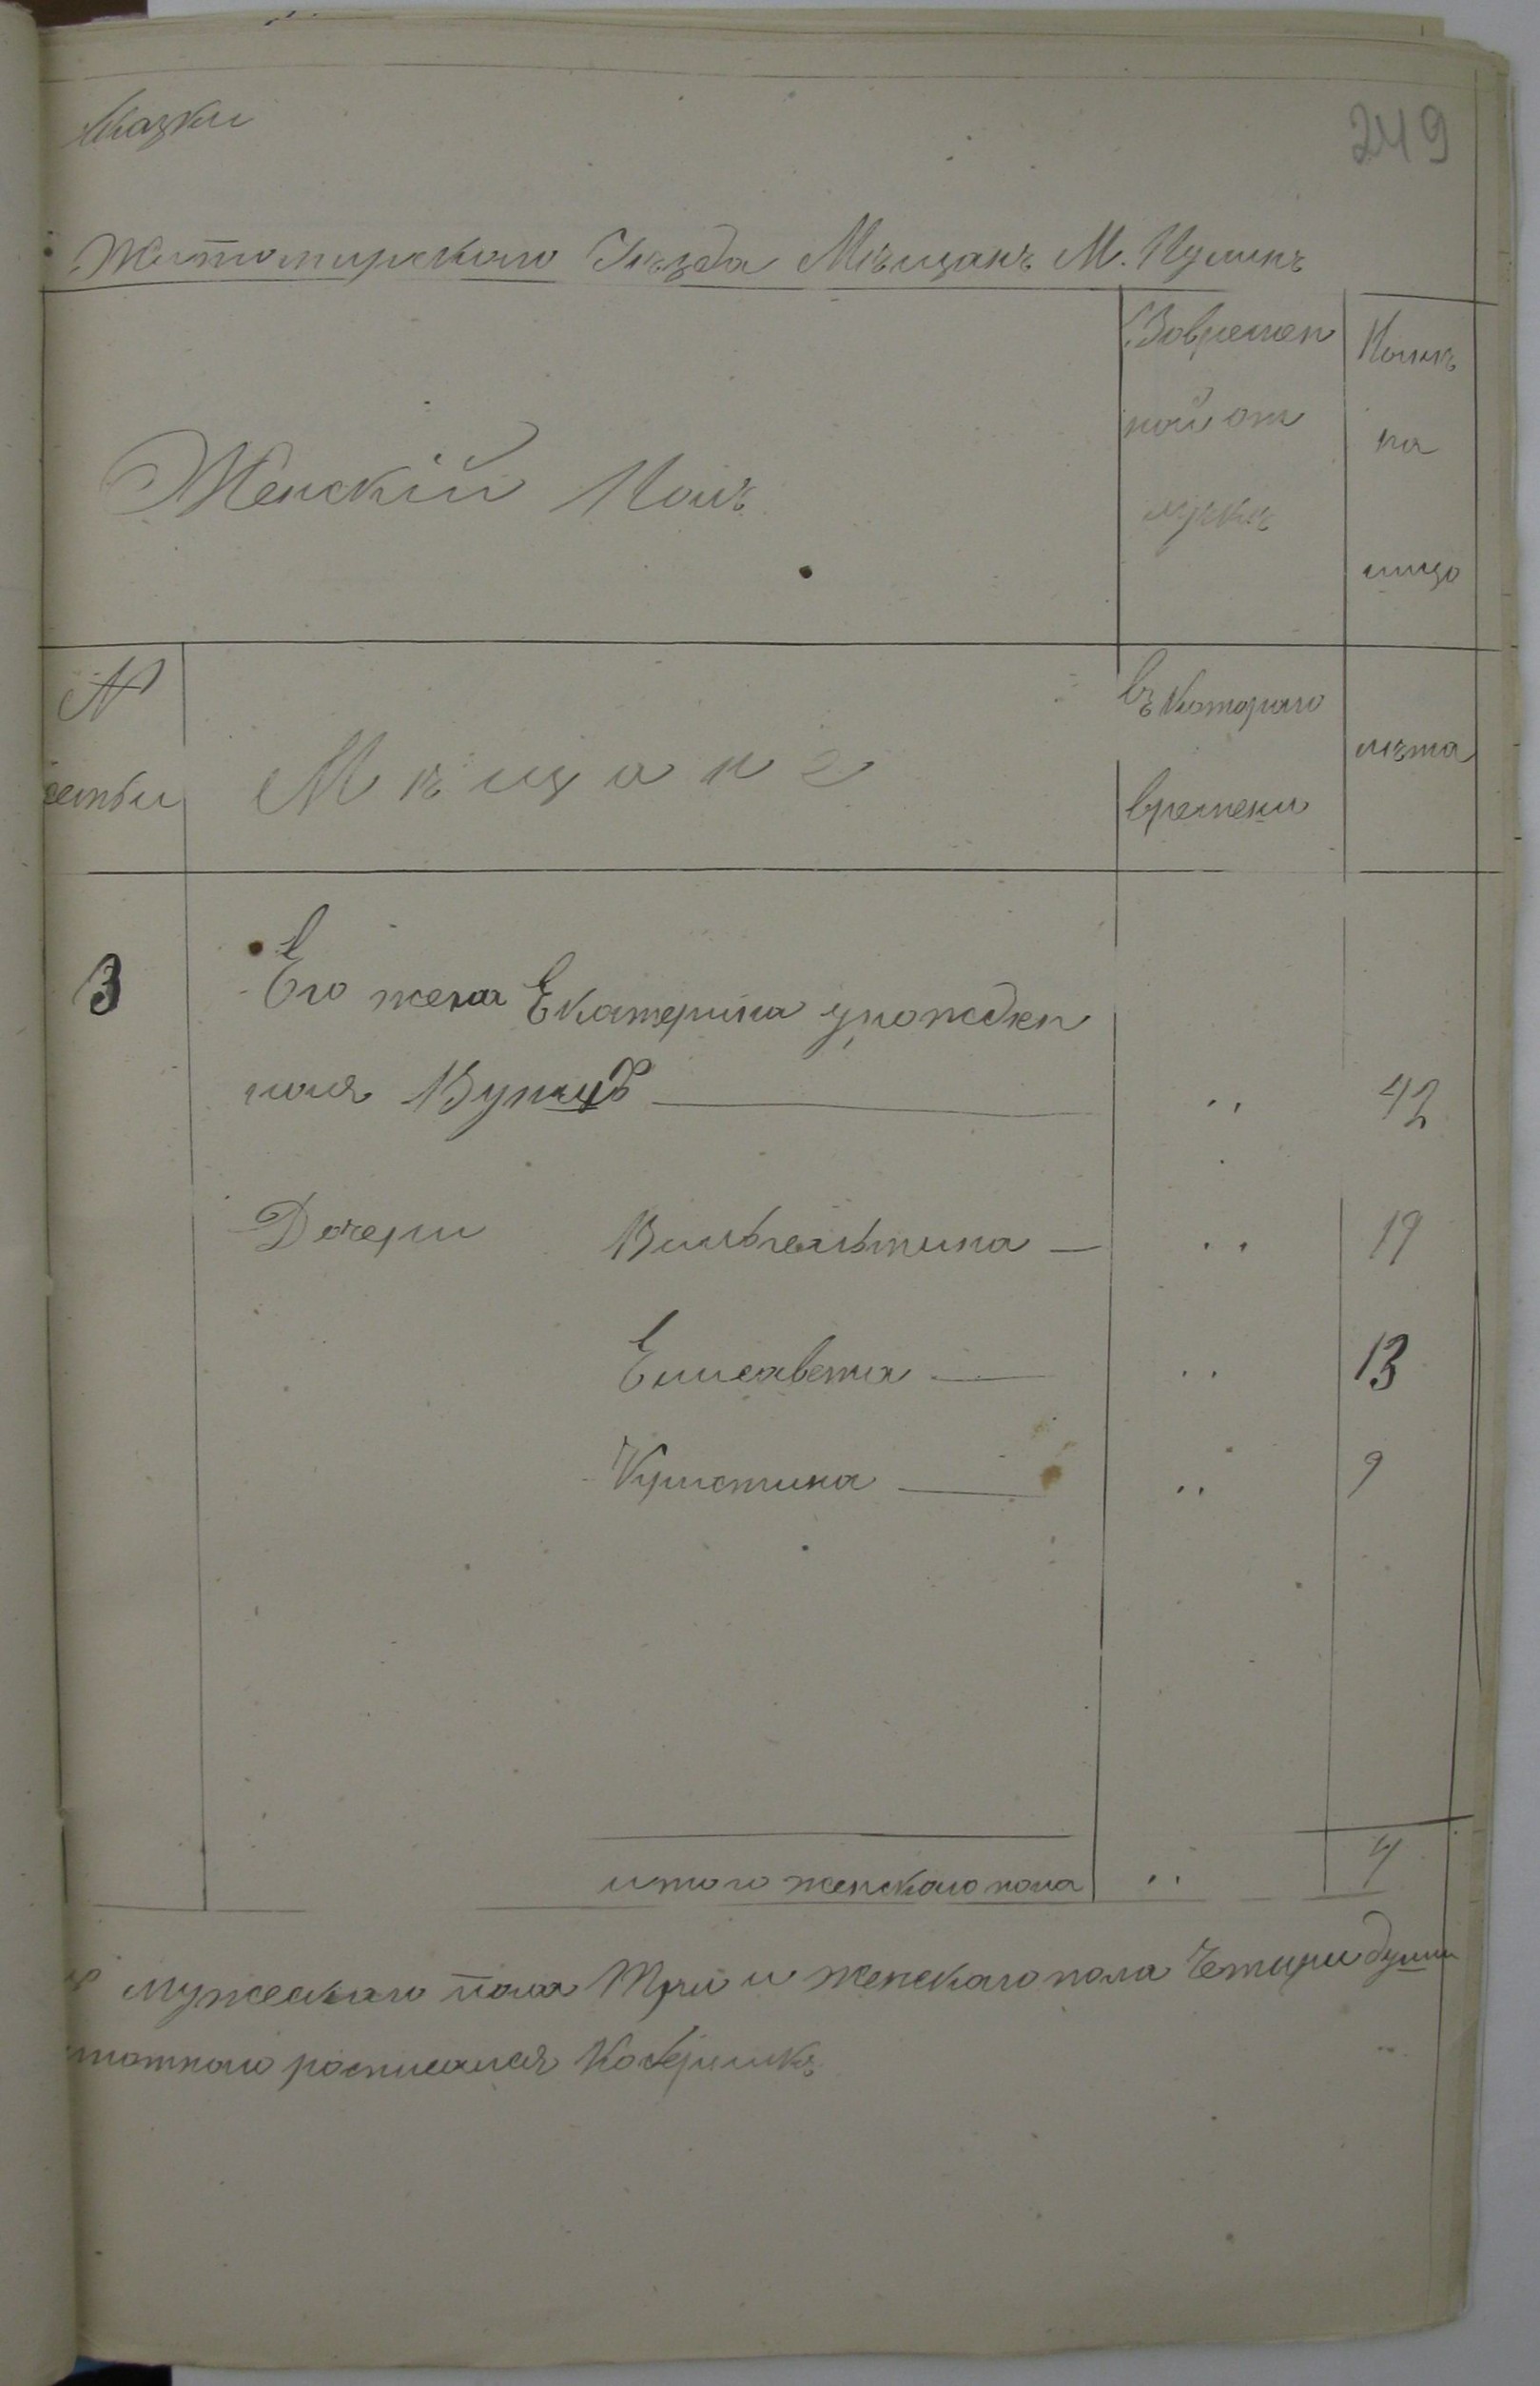 сказки
249
Житомирского Уѣзда Мѣщанъ М. Пулинъ
Женскій Полъ
Вовремен
ной от
лучкѣ
Нынѣ
на
лицо
№
семьи
Мѣщане
въ котораго
времени
лѣта
3
Его жена Екатерина урожден
ная
42
Дочери Вильгельмина 19
Елисавета 13
Кристина 9
итого женскаго пола 4
мужескаго пола три и женскаго пола четыри души
росписался